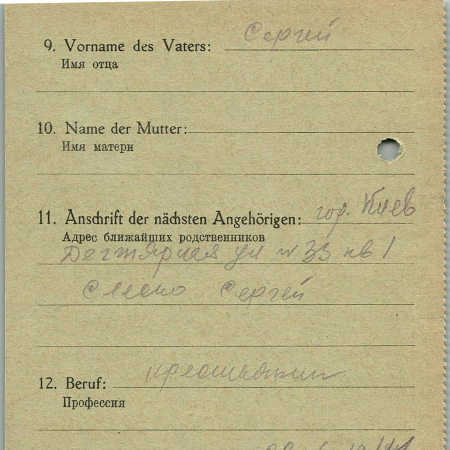 9. Vorname des Vaters: Сергей
Имя отца
10. Name der Mutter:
Имя матери
11. Anschrift der nächsten Angehörigen: гор. Киев
Адрес ближайших родственников
Дегтярная ул № 33 кв 1
Сергей
12. Beruf:
Профессия